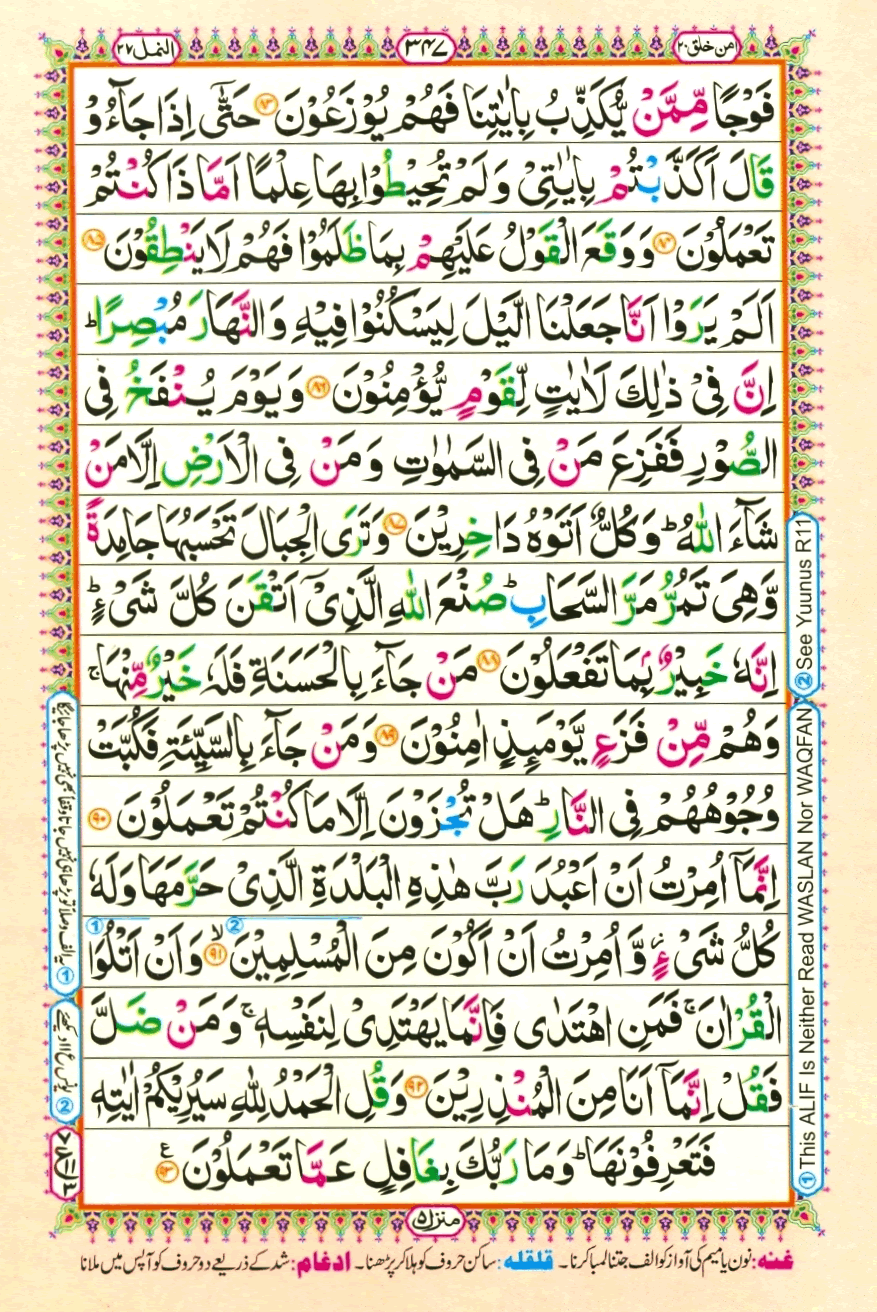 امن خلق ۲۰
۳۴۷
النمل ۲۷
فَوْجًا مِّمَّنْ يُّكَذِّبُ بِاٰيٰتِنَا فَهُمْ يُوْزَعُوْنَ ﴿۸۳﴾ حَتّٰۤى اِذَا جَآءُوْ
قَالَ اَكَذَّبْتُمْ بِاٰيٰتِىْ وَلَمْ تُحِيْطُوْا بِهَا عِلْمًا اَمَّا ذَا كُنْتُمْ
تَعْمَلُوْنَ ﴿۸۴﴾ وَوَقَعَ الْقَوْلُ عَلَيْهِمْ بِمَا ظَلَمُوْا فَهُمْ لَا يَنْطِقُوْنَ ﴿۸۵﴾
اَلَمْ يَرَوْا اَنَّا جَعَلْنَا الَّيْلَ لِيَسْكُنُوْا فِيْهِ وَالنَّهَارَ مُبْصِرًا ؕ
اِنَّ فِىْ ذٰلِكَ لَاٰيٰتٍ لِّقَوْمٍ يُّؤْمِنُوْنَ ﴿۸۶﴾ وَيَوْمَ يُنْفَخُ فِى
الصُّوْرِ فَفَزِعَ مَنْ فِى السَّمٰوٰتِ وَمَنْ فِى الْاَرْضِ اِلَّا مَنْ
شَآءَ اللّٰهُ ؕ وَكُلٌّ اَتَوْهُ دَاخِرِيْنَ ﴿۸۷﴾ وَتَرَى الْجِبَالَ تَحْسَبُهَا جَامِدَةً
وَّهِىَ تَمُرُّ مَرَّ السَّحَابِ ؕ صُنْعَ اللّٰهِ الَّذِىْۤ اَتْقَنَ كُلَّ شَىْءٍ ؕ
اِنَّهٗ خَبِيْرٌۢ بِمَا تَفْعَلُوْنَ ﴿۸۸﴾ مَنْ جَآءَ بِالْحَسَنَةِ فَلَهٗ خَيْرٌ مِّنْهَا ۚ
وَهُمْ مِّنْ فَزَعٍ يَّوْمَئِذٍ اٰمِنُوْنَ ﴿۸۹﴾ وَمَنْ جَآءَ بِالسَّيِّئَةِ فَكُبَّتْ
وُجُوْهُهُمْ فِى النَّارِ ؕ هَلْ تُجْزَوْنَ اِلَّا مَا كُنْتُمْ تَعْمَلُوْنَ ﴿۹۰﴾
اِنَّمَاۤ اُمِرْتُ اَنْ اَعْبُدَ رَبَّ هٰذِهِ الْبَلْدَةِ الَّذِىْ حَرَّمَهَا وَلَهٗ
كُلُّ شَىْءٍ ؗ وَّاُمِرْتُ اَنْ اَكُوْنَ مِنَ الْمُسْلِمِيْنَ ﴿۹۱﴾ ۙ وَاَنْ اَتْلُوَا
الْقُرْاٰنَ ۚ فَمَنِ اهْتَدٰى فَاِنَّمَا يَهْتَدِىْ لِنَفْسِهٖ ۚ وَمَنْ ضَلَّ
فَقُلْ اِنَّمَاۤ اَنَا مِنَ الْمُنْذِرِيْنَ ﴿۹۲﴾ وَقُلِ الْحَمْدُ لِلّٰهِ سَيُرِيْكُمْ اٰيٰتِهٖ
فَتَعْرِفُوْنَهَا ؕ وَمَا رَبُّكَ بِغَافِلٍ عَمَّا تَعْمَلُوْنَ ﴿۹۳﴾ ع
① This ALIF Is Neither Read WASLAN Nor WAQFAN
② See Yuunus R11
① یہ الف وصلاً تو پڑھا ہی نہیں جاتا وقفاً بھی نہیں پڑھا جائیگا
② یونس ع ۱۱ دیکھیے
منزل ۵
غنه: نون یا میم کی آواز کو الف جتنا لمبا کرنا۔ قلقله: ساکن حروف کو ہلا کر پڑھنا۔ ادغام: شد کے ذریعے دو حروف کو آپس میں ملانا